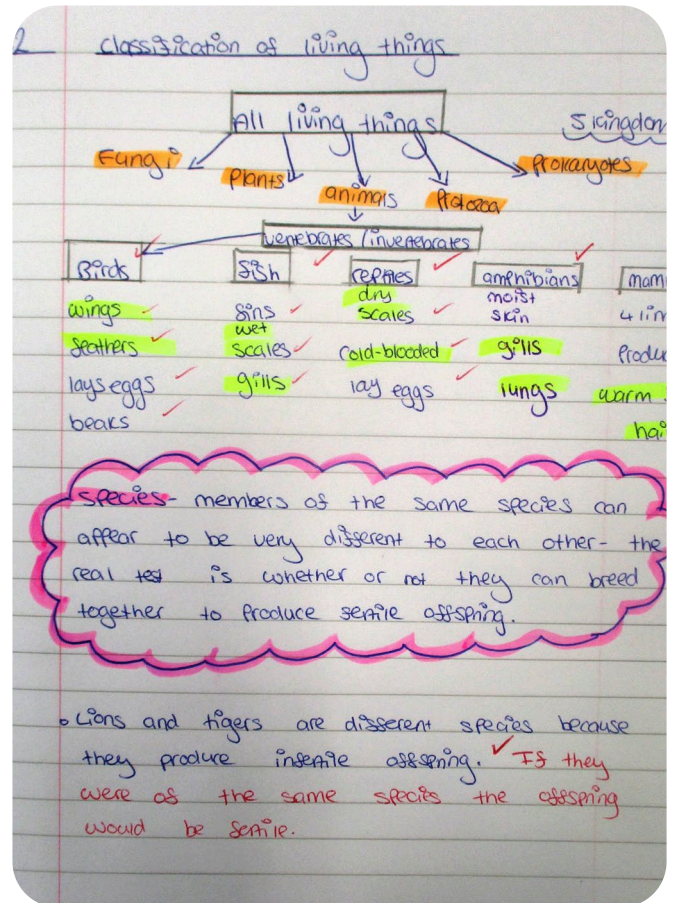 2 classification of living things
All living things
5 kingdom
Fungi
Plants
animals
Protozoa
Prokaryotes
vertebrates/invertebrates
Birds
wings
feathers
lays eggs
beaks
fish
fins
wet
scales
gills
reptiles
dry
scales
cold-blooded
lay eggs
amphibians
moist
skin
gills
lungs
mam
4 lim
Produ
warm
hai
species- members of the same species can
appear to be very different to each other- the
real test is whether or not they can breed
together to produce fertile offspring.
Lions and tigers are different species because
they produce infertile offspring. If they
were of the same species the offspring
would be fertile.